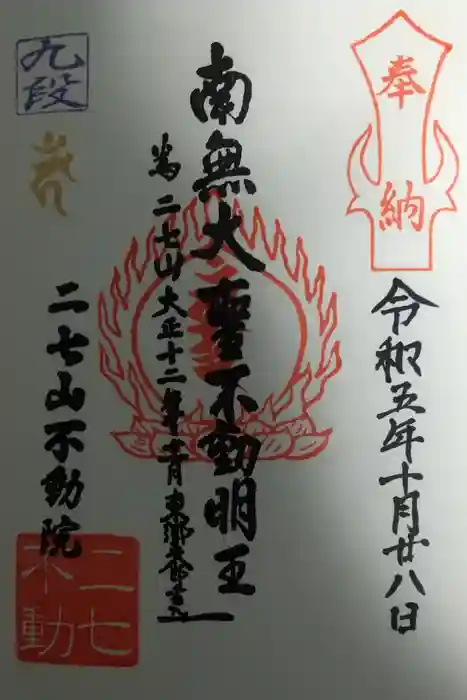 奉納
令和五年十月廿八日
南無大聖不動明王
為二七山大正十二年十月
二七山不動院
九段
二七不動